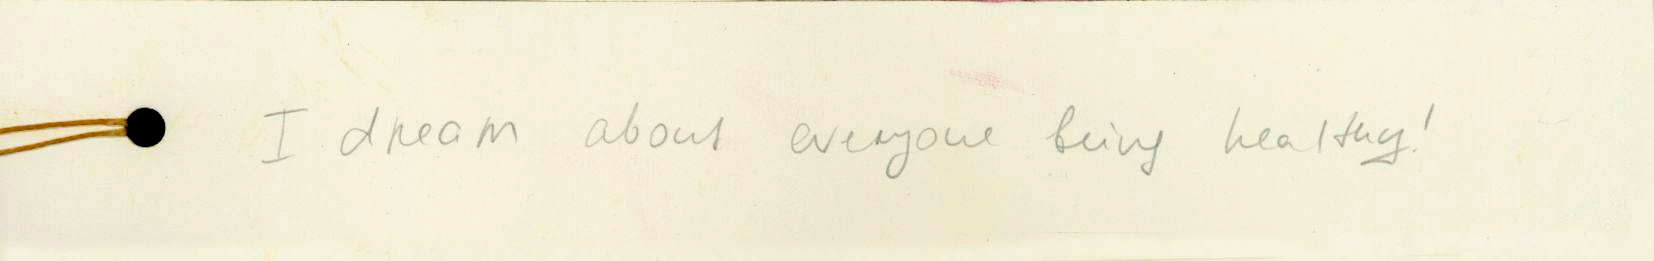 I dream about everyone being healthy!